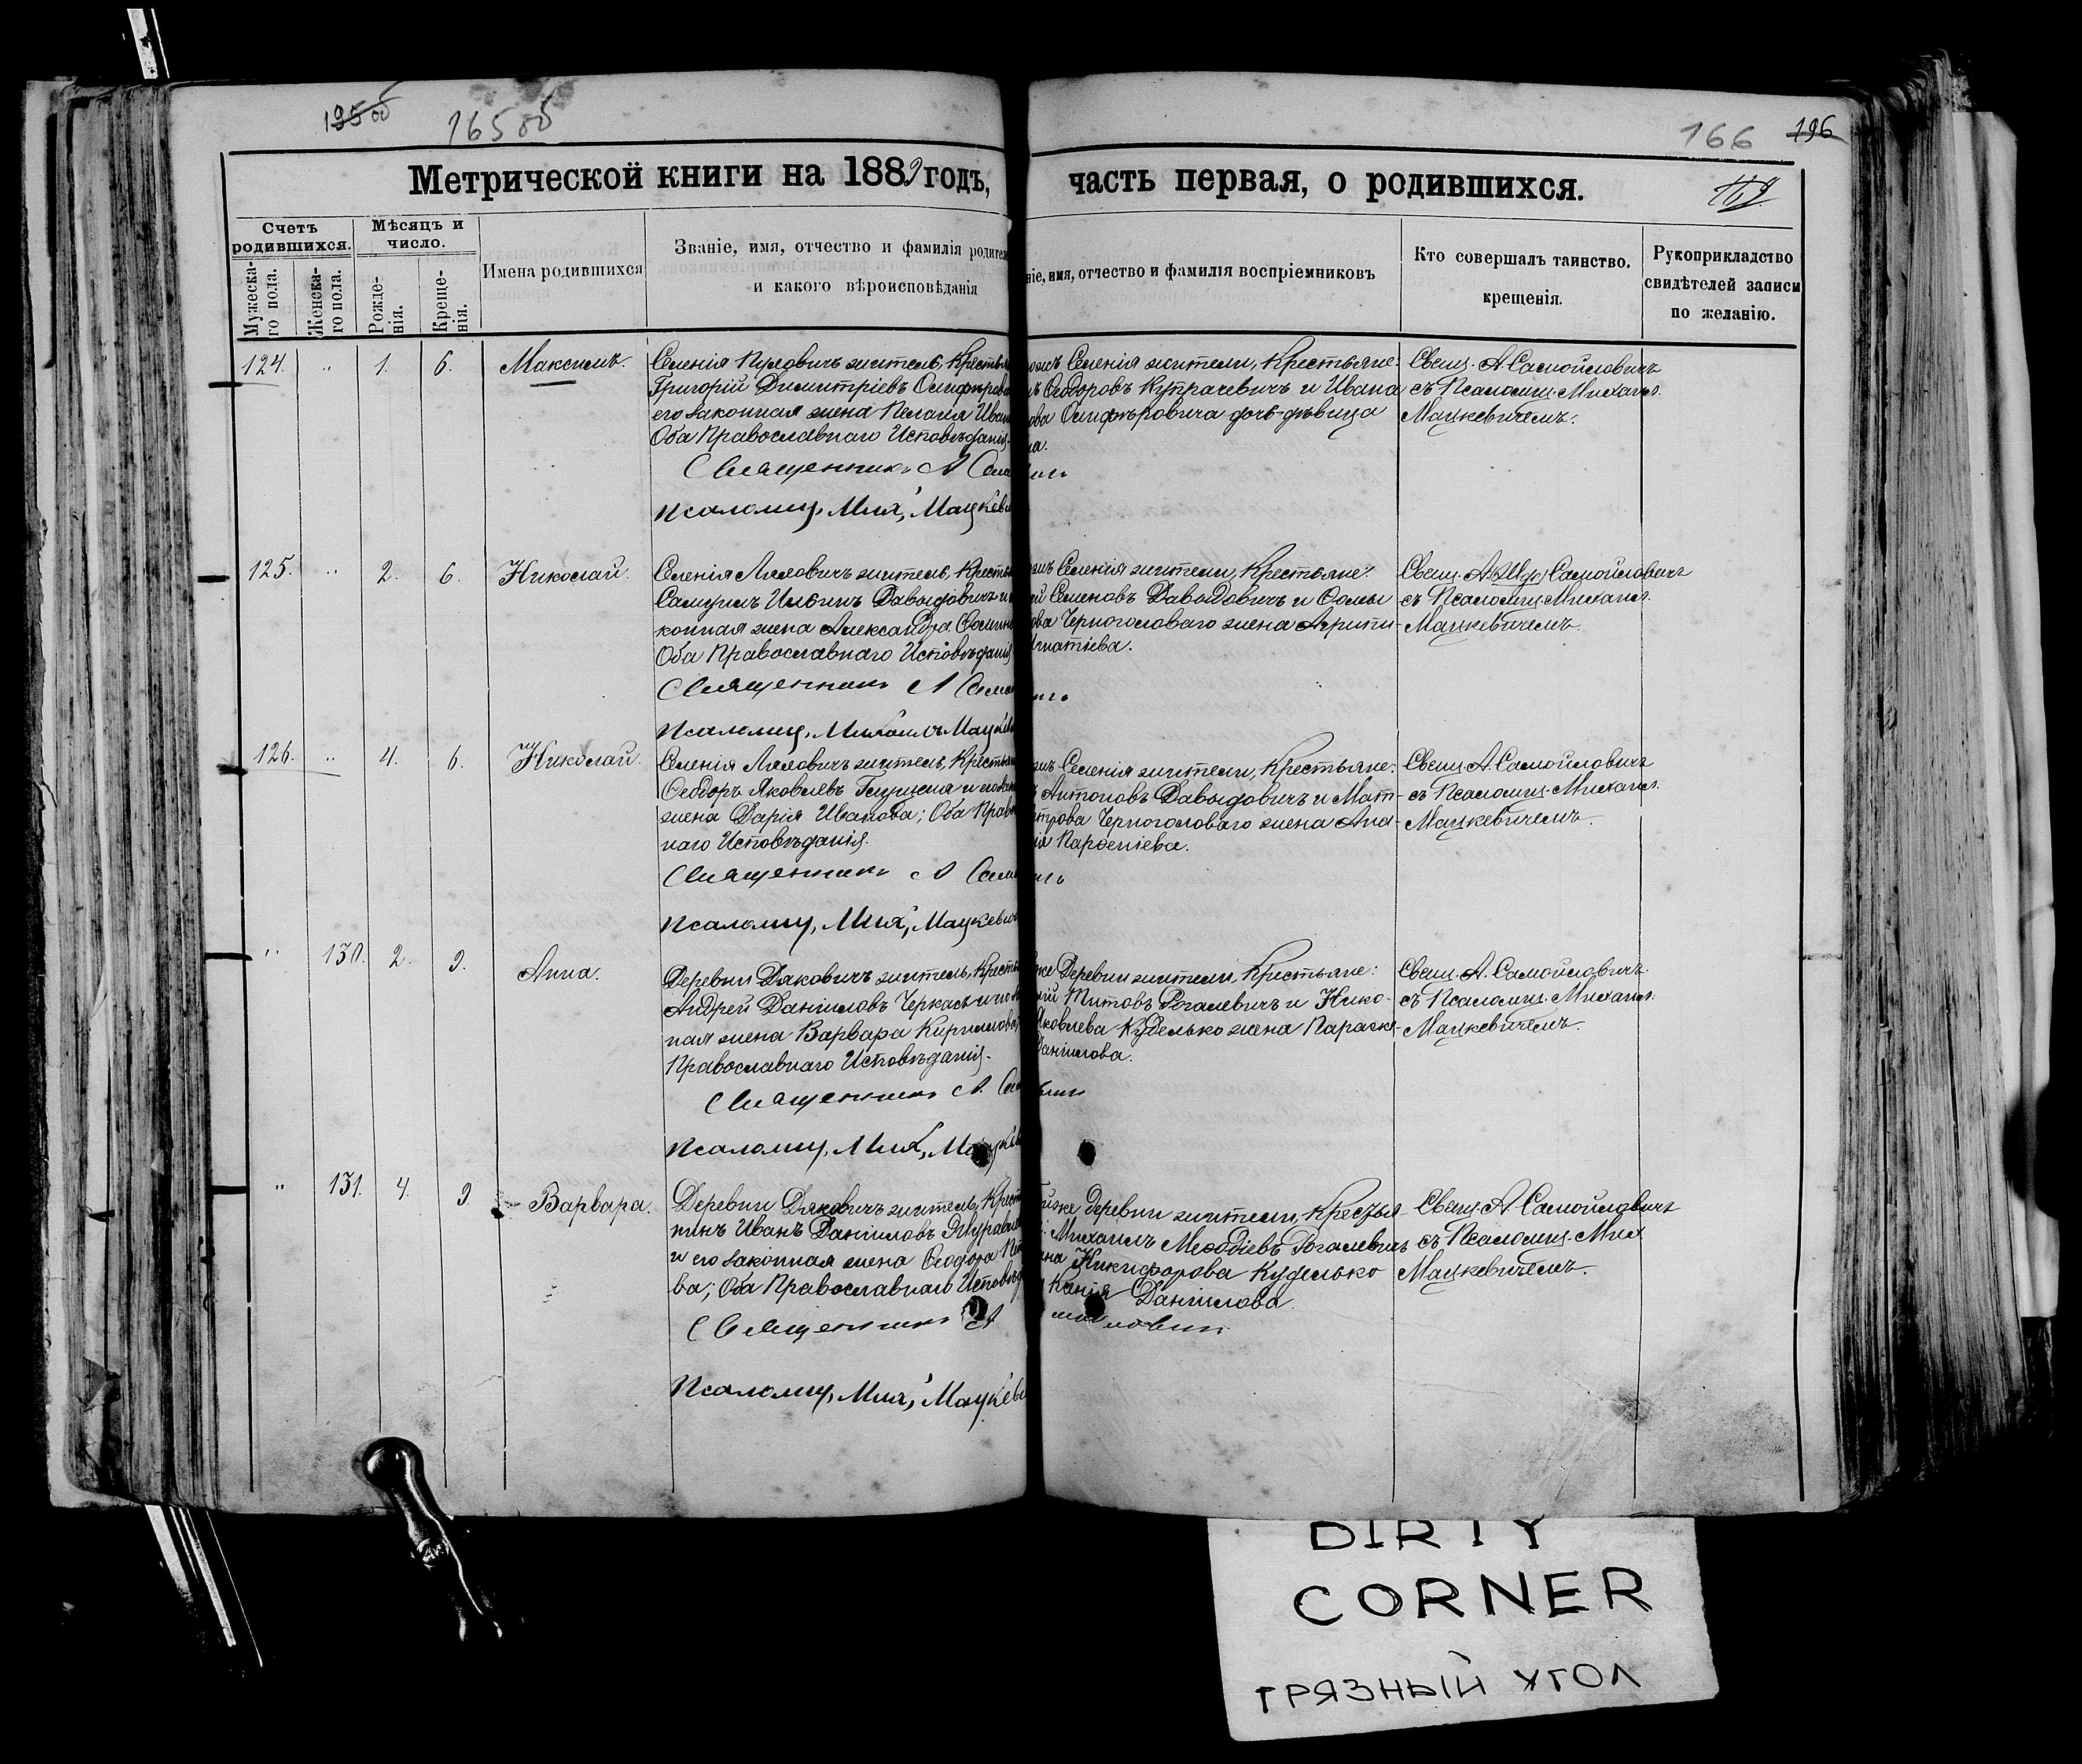 195 об
165 об
166
196
Метрической книги на 1889 годъ,
часть первая, о родившихся.
Счетъ родившихся.
Мѣсяцъ и число.
Мужеска-го пола.
Женска-го пола.
Рожде-нія.
Креще-нія.
Имена родившихся
Званіе, имя, отчество и фамилія родител
и какого вѣроисповѣданія
ніе, имя, отчество и фамилія воспріемниковъ
Кто совершалъ таинство.
крещенія.
Рукоприкладство
свидѣтелей записи
по желанію.
124. " 1. 6. Максимъ.
Селенія Пулдовичъ житель, Крестья
Григорій Димитріевъ
его законная жена Пелагея Иван
Оба Православнаго Исповѣданія.
Священникъ А Сам
Псаломщ. Мих. Мацкеви
Селенія жители, Крестьяне:
Ѳеодоровъ Купрачевичъ и Ивана
ова дочь-дѣвица
на.
Свящ. А. Самойловичъ
съ Псаломщ. Михаил.
Мацкевичемъ.
125. " 2. 6. Николай.
Селенія Лядовичъ житель, Кресть
Самуилъ Ильинъ Давыдовичъ и
конная жена Александра
Оба Православнаго Исповѣданія
Священникъ А Само
Псаломщ. Михаилъ Мацкев
Селенія жители, Крестьяне:
ей Семеновъ Давыдовичъ и Ѳомы
ова Черноголоваго жена Агрипи-
Игнатіева.
Свящ. А. Самойловичъ
съ Псаломщ. Михаил.
Мацкевичемъ.
126. " 4. 6. Николай.
Селенія Лядовичъ житель, Крестья
Ѳеодоръ Яковлевъ и
жена Дарія Иванова; Оба Право
наго Исповѣданія.
Священникъ А Само
Псаломщ. Мих. Мацкеви
Селенія жители, Крестьяне:
Антоновъ Давыдовичъ и Мат-
Черноголоваго жена Ана-
ія Парѳеніева.
Свящ. А. Самойловичъ
съ Псаломщ. Михаил.
Мацкевичемъ.
" 130. 2. 9. Анна.
Деревни Дяковичъ житель, Кресть
Андрей Даніиловъ Черкасъ и
ная жена Варвара Кириллова
Православнаго Исповѣданія.
Священникъ А. Сам
Псаломщ. Мих. Мацкев
же Деревни жители, Крестьяне:
ій Титовъ Рогалевичъ и Нико-
Яковлева Куделько жена Параск
Даніилова.
Свящ. А. Самойловичъ
съ Псаломщ. Михаил.
Мацкевичемъ.
" 131. 4. 9. Варвара.
Деревни Дяковичъ житель, Крест
нинъ Иванъ Даніиловъ
и его законная жена Ѳеодора
ва; Оба Православнаго Исповѣд
Священникъ А
Псаломщ. Мих. Мацкеви
же деревни жители, Крестья
Михаилъ Меѳодіевъ Рогалевичъ
Никифорова Куделько
Даніилова.
Свящ. А. Самойловичъ
съ Псаломщ. Мих
Мацкевичемъ.
DIRTY
CORNER
ГРЯЗНЫЙ УГОЛ